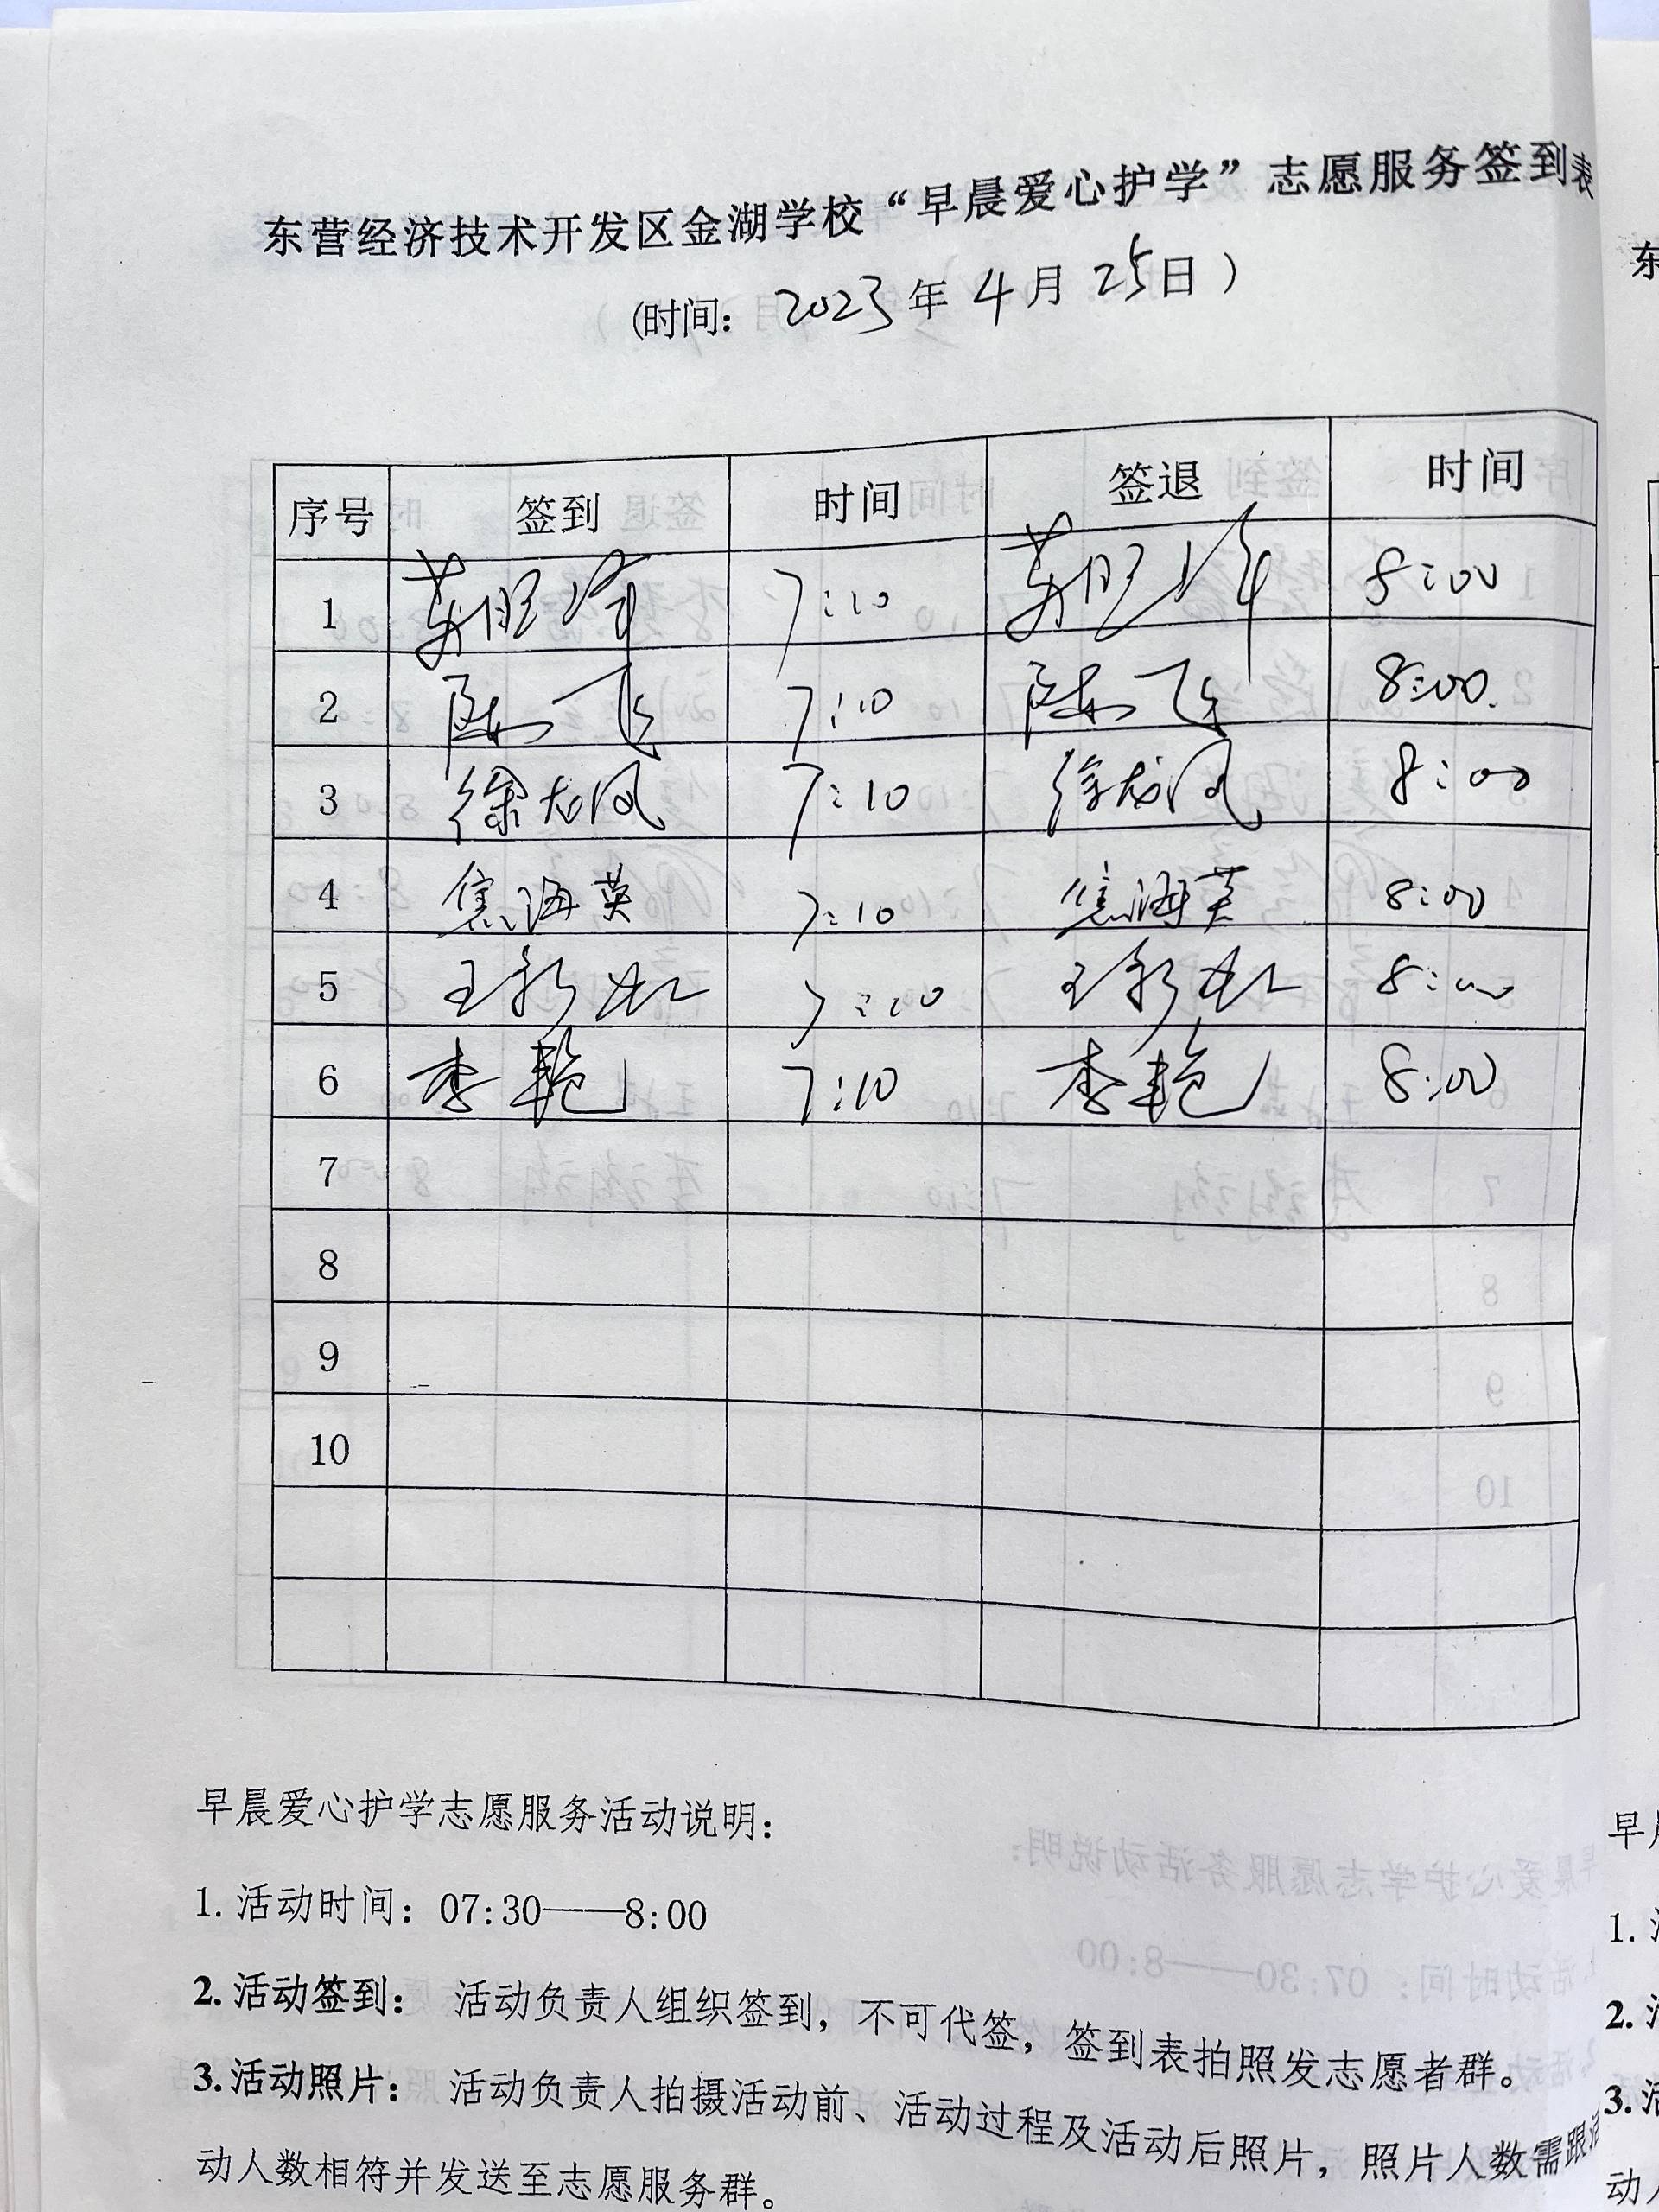 东营经济技术开发区金湖学校“早晨爱心护学”志愿服务签到表
(时间: 2023年4月25日)
序号 签到 时间 签退 时间
1 7:10 8:00
2 陈飞 7:10 陈飞 8:00
3 徐龙凤 7:10 徐龙凤 8:00
4 焦海英 7:10 焦海英 8:00
5 王彩虹 7:10 王彩虹 8:00
6 李艳 7:10 李艳 8:00
7
8
9
10
早晨爱心护学志愿服务活动说明:
1.活动时间: 07:30——8:00
2.活动签到: 活动负责人组织签到,不可代签,签到表拍照发志愿者群。
3.活动照片: 活动负责人拍摄活动前、活动过程及活动后照片,照片人数需跟活
动人数相符并发送至志愿服务群。